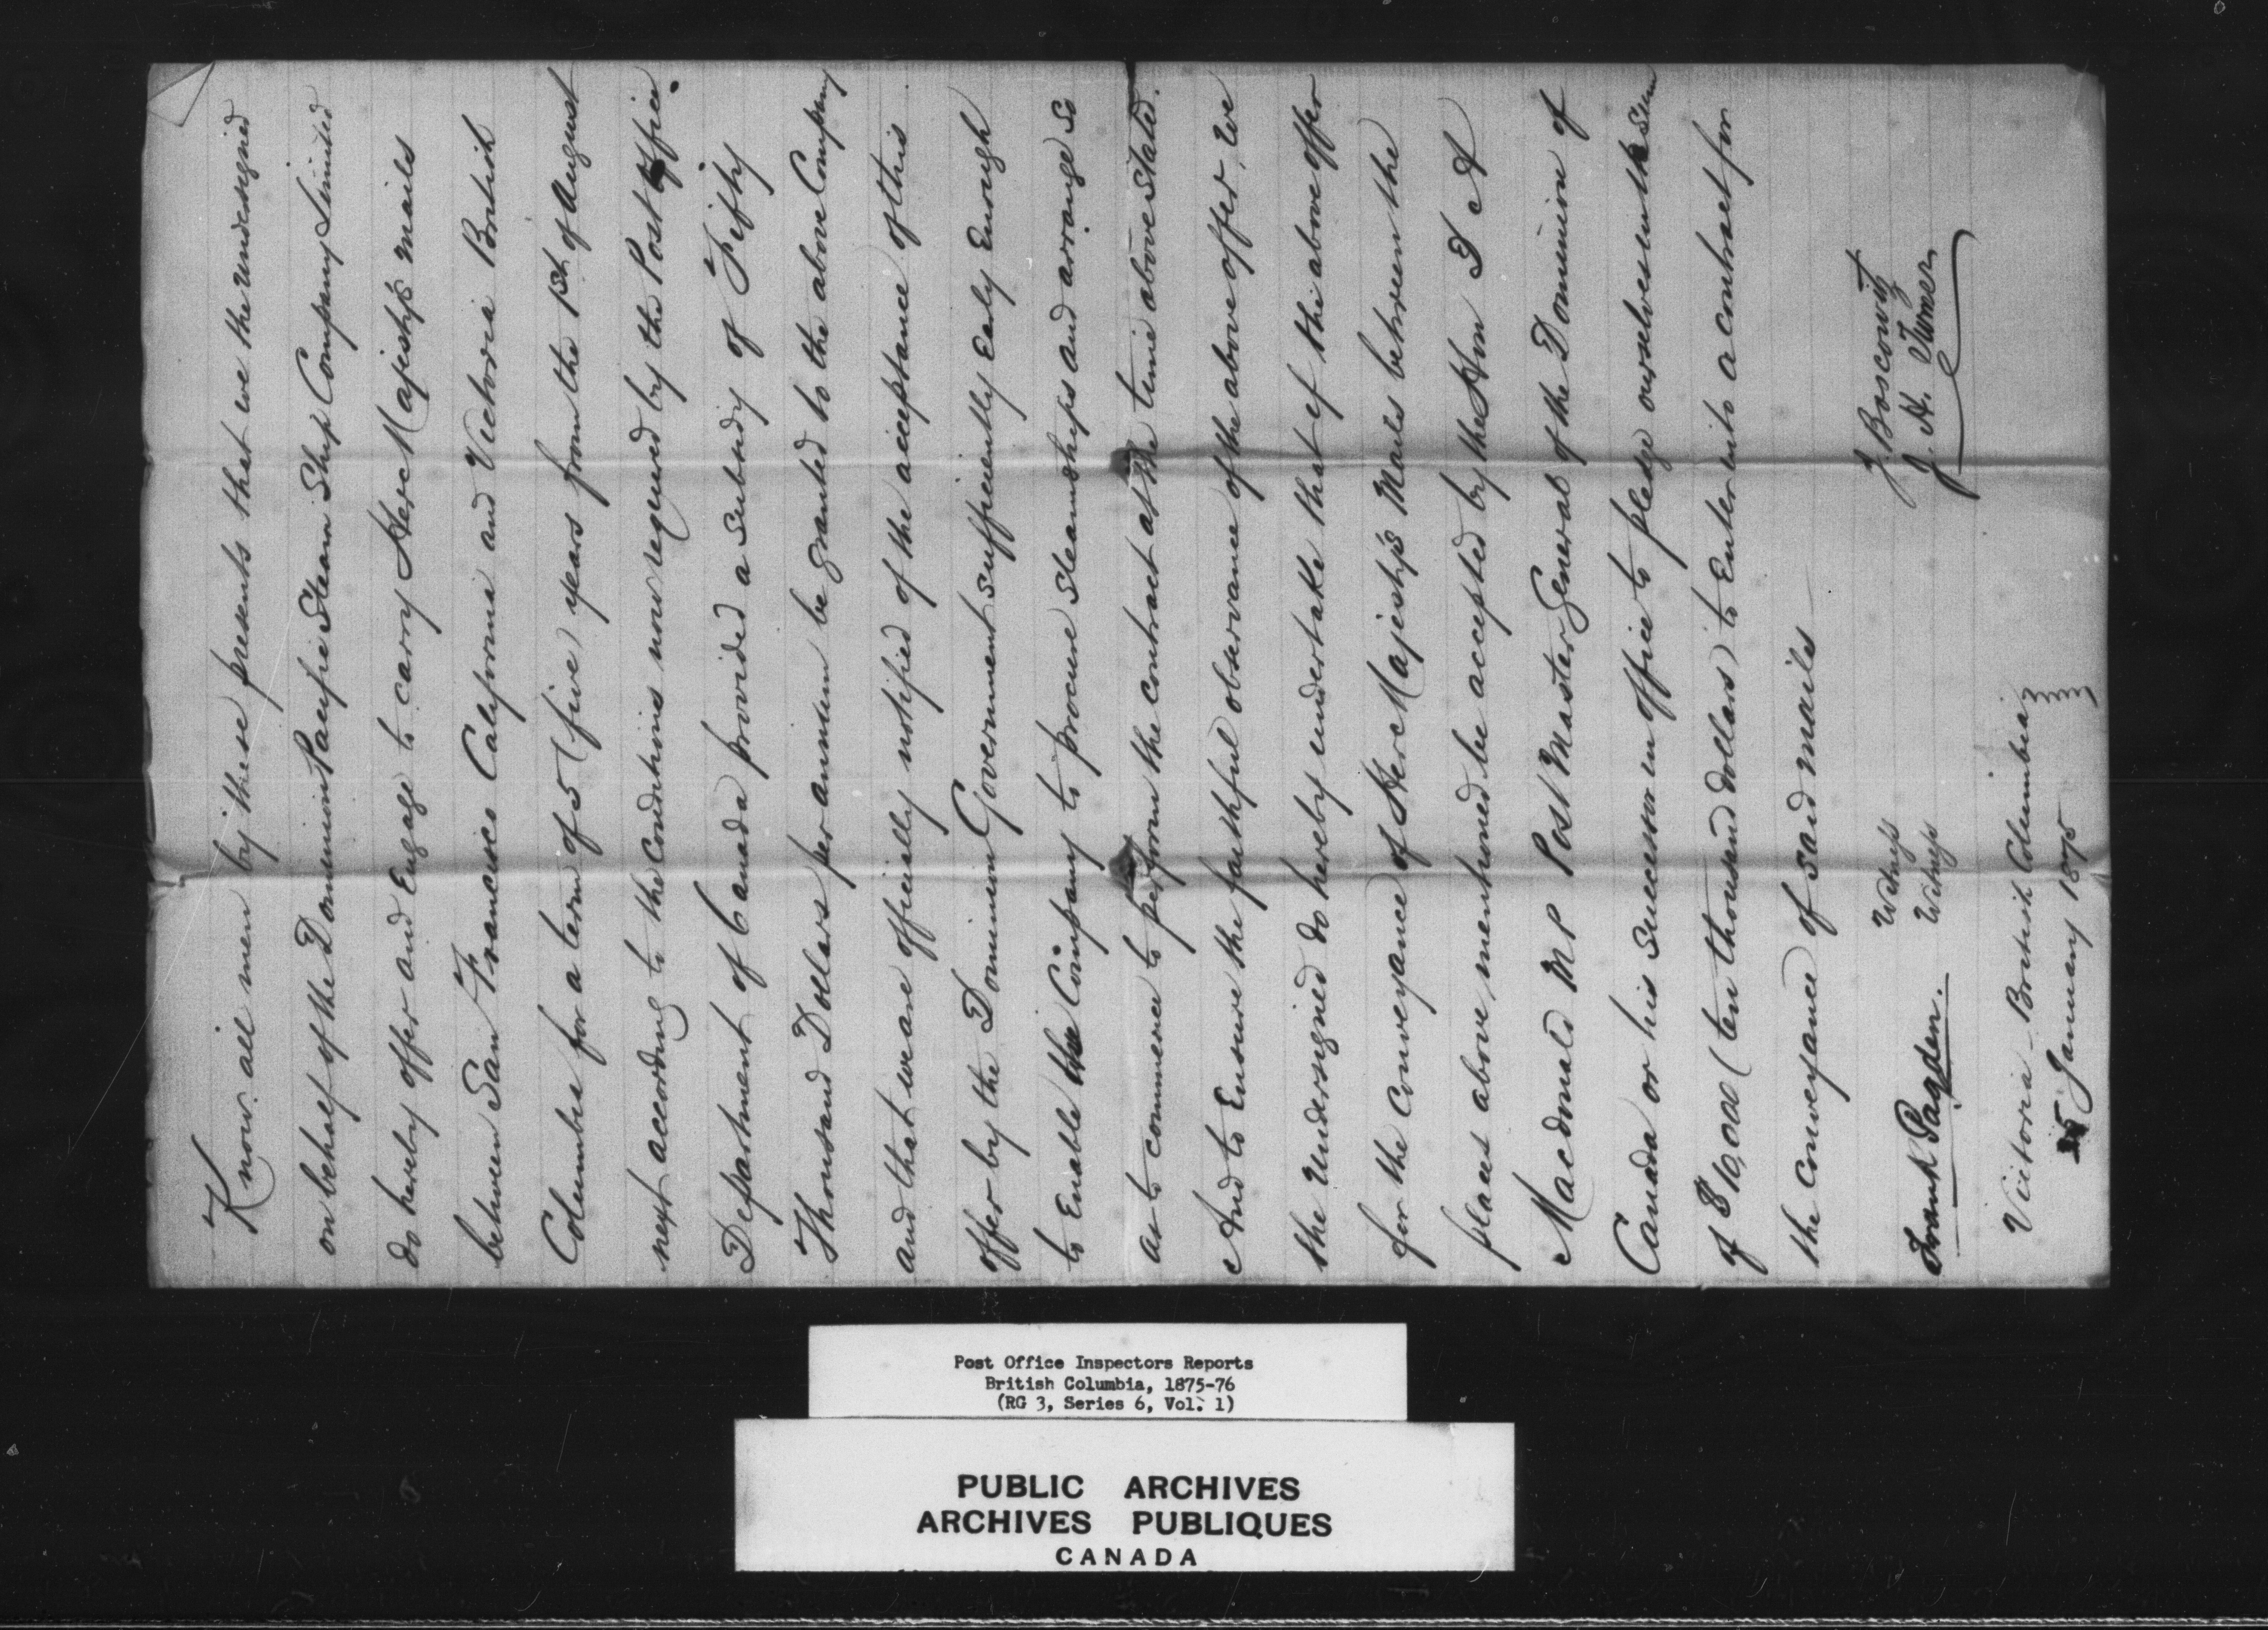 Know all men by these presents that we the undersigned
on behalf of the Dominion Pacific Steam Ship Company Limited
do hereby offer and Engage to carry Her Majesty's mails
between San Francisco California and Victoria British
Columbia for a term of 5 (five) years from the 1st of August
next according to the Conditions now required by the Post office.
Department of Canada provided a subsidy of Fifty
Thousand Dollars per annum be granted to the above Company
and that we are officially notified of the acceptance of this
offer by the Dominion Government sufficiently Early Enough
to Enable the Company to procure steamships and arrange so
as to commence to perform the contract at the time above stated.
And to Ensure the faithful observance of the above offer, We
the Undersigned do hereby undertake that if the above offer
for the Conveyance of Her Majesty's Mails between the
places above mentioned be accepted by the Hon D A
Macdonald M P Post Master General of the Dominion of
Canada or his Successor in office to pledge ourselves in the sum
of $10,000 (ten thousand dollars) to Enter into a contract for
the Conveyance of said mails
Witness J. Boscowitz
Frank Pagden. Witness J. H. Turner
Victoria British Columbia
25 January 1875
Post Office Inspectors Reports
British Columbia, 1875-76
(RG 3, Series 6, Vol. 1)
PUBLIC ARCHIVES
ARCHIVES PUBLIQUES
CANADA